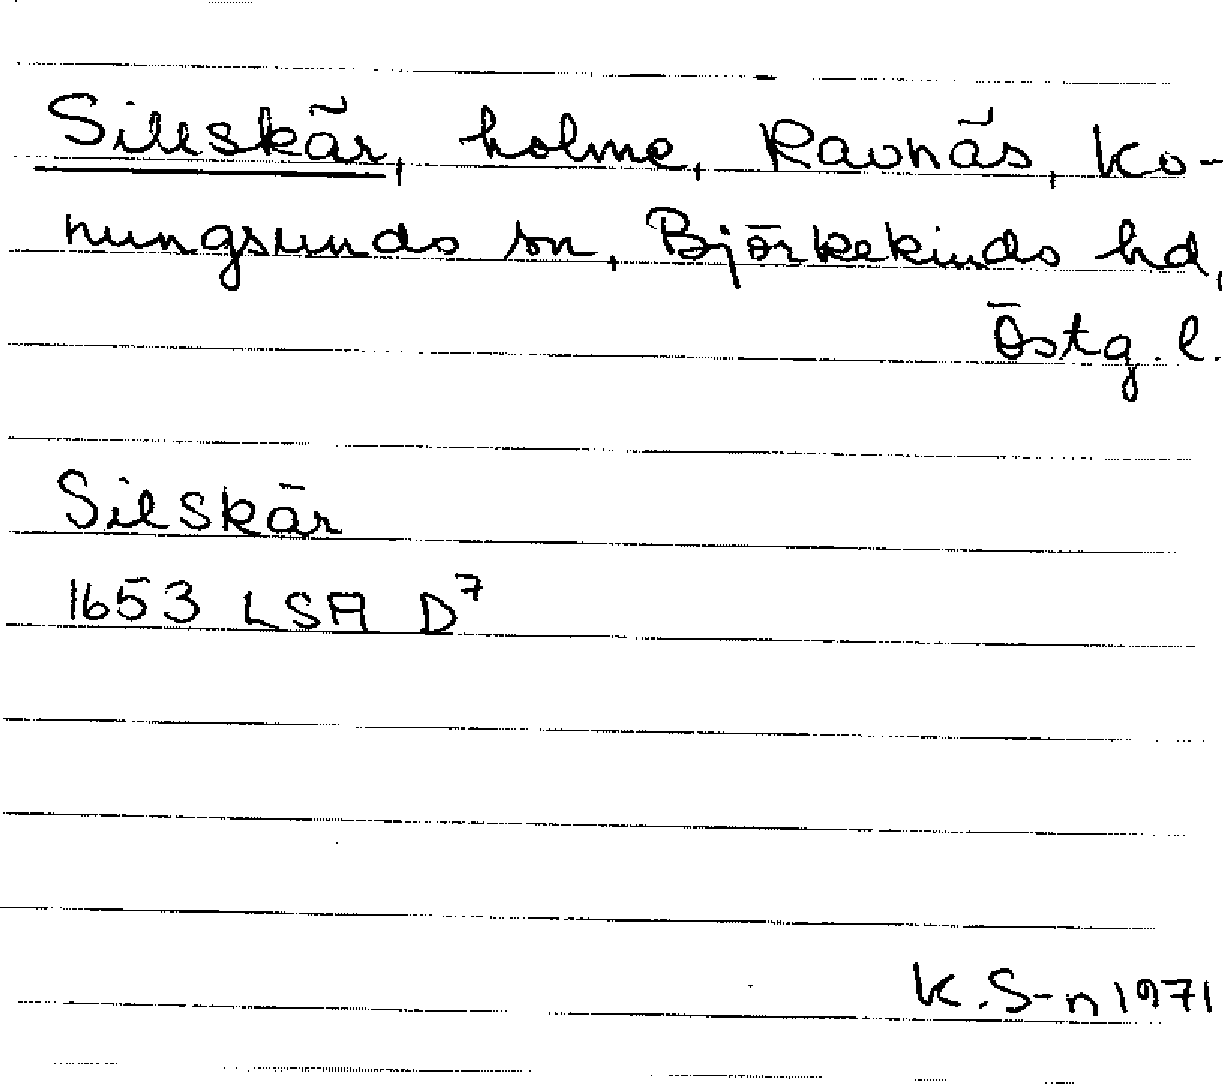 Sillskär, holme, Ravnäs, Ko-
nungsunds sn, Björkekinds hd,
Östg. l.
Silskär
1653 LSA D⁷
K. S-n 1971